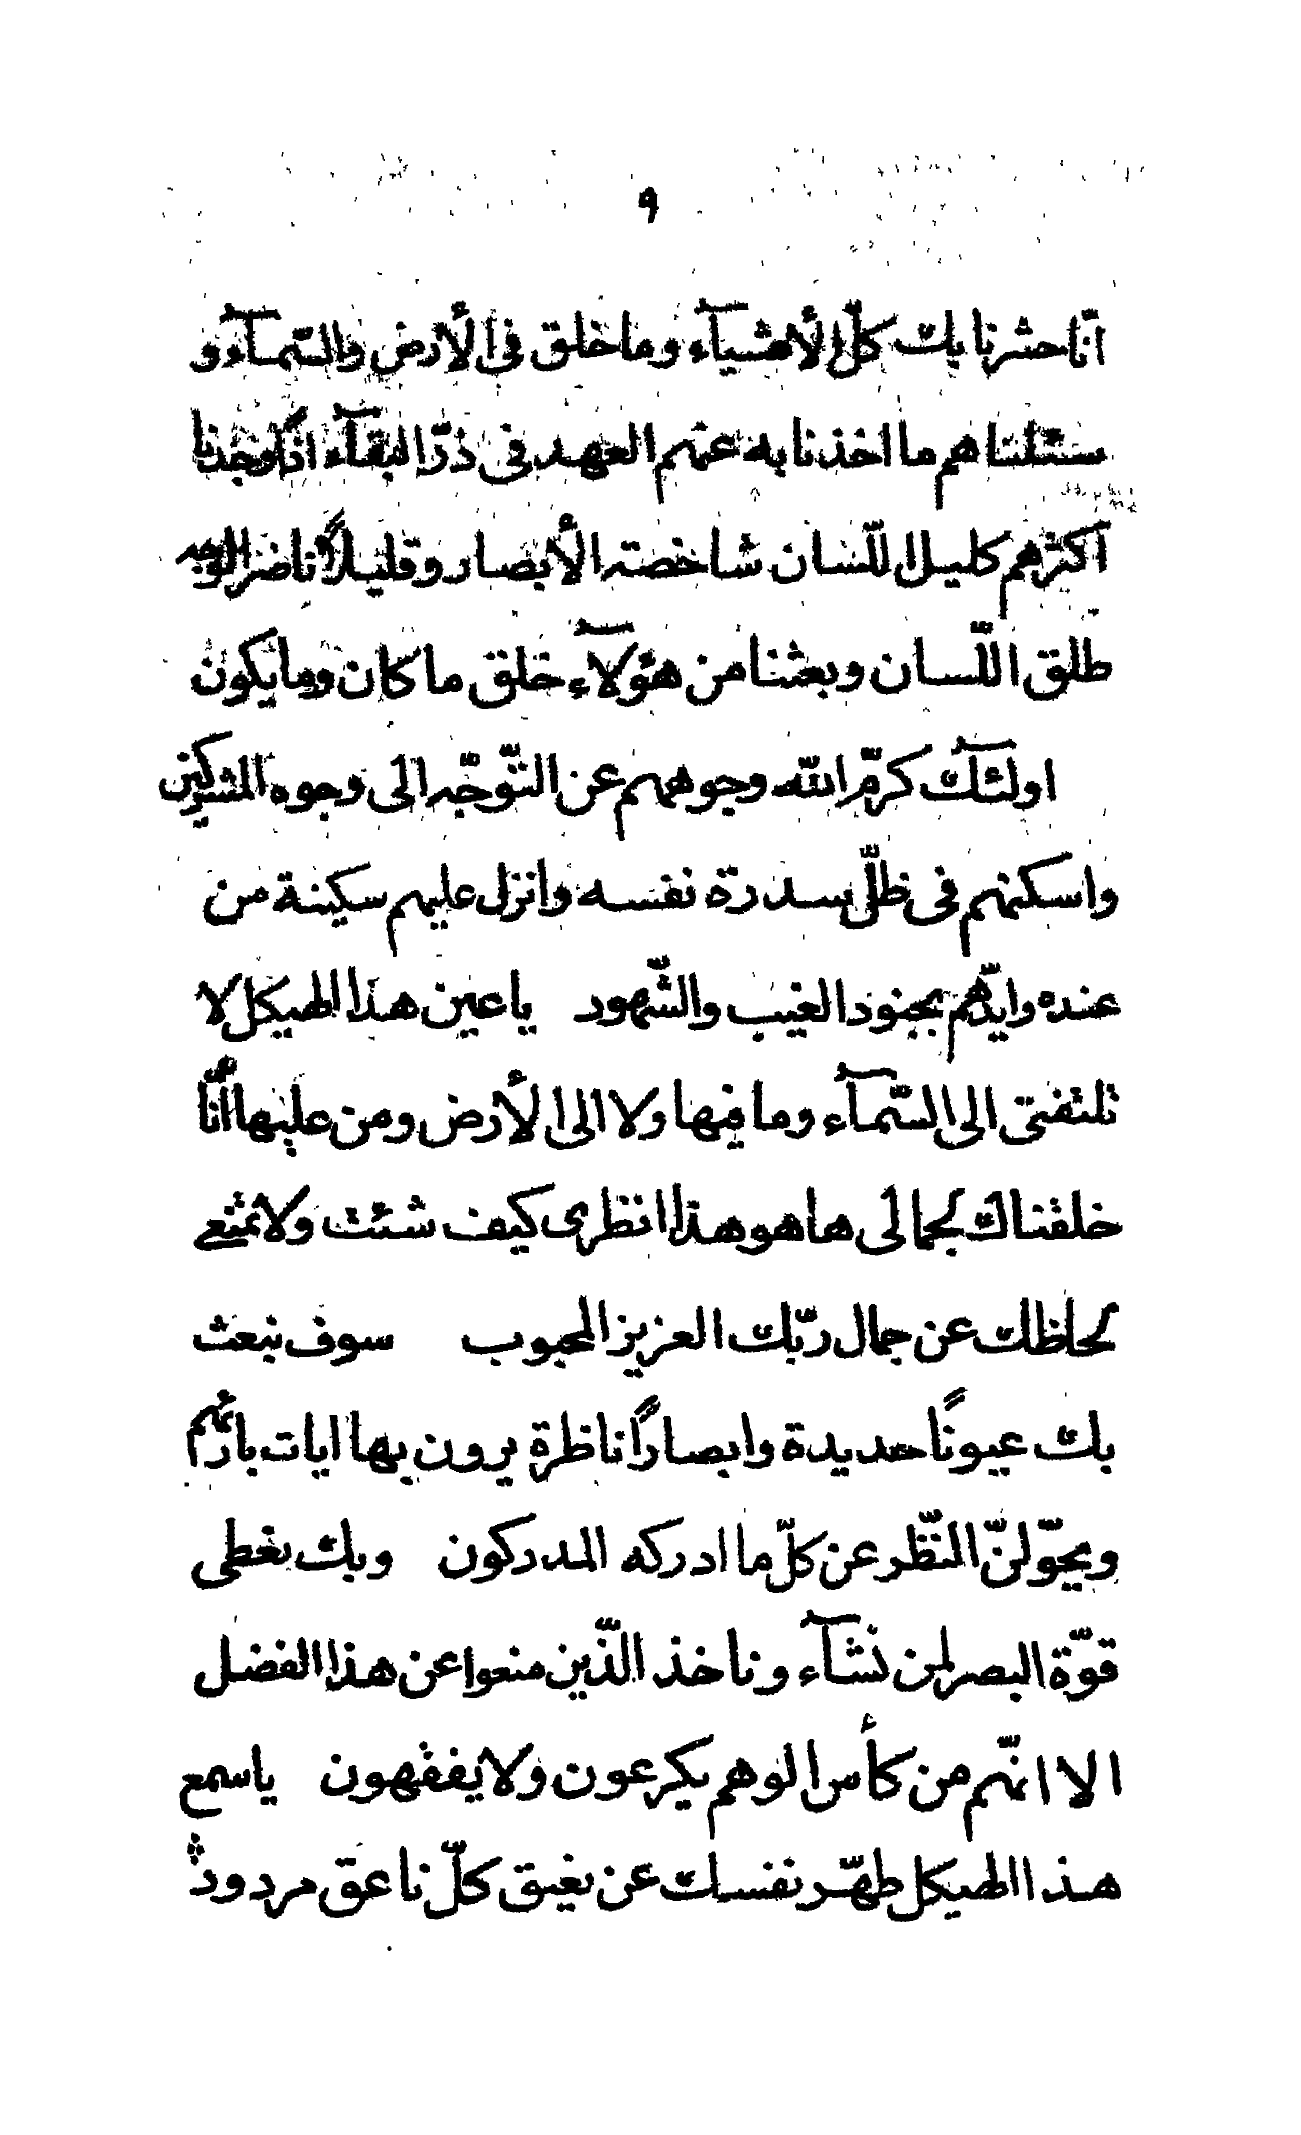 ٩
انّا حشرنا بك كلّ الأشيآء وما خلق فى الأرض والسّمآء و
سئلناهم ما اخذنا به عنهم العهد فى ذرّ البقآء اذًا وجدنا
اكثرهم كليل اللّسان شاخصة الأبصار وقليلاً ناضر الوجه
طلق اللّسان وبعثنا من هؤلآء خلق ما كان وما يكون
اولئك كرّم اللّه وجوههم عن التّوجّه الى وجوه المشركين
واسكنهم فى ظلّ سدرة نفسه وانزل عليهم سكينة من
عنده وايّدهم بجنود الغيب والشّهود يا عين هذا الهيكل لا
تلتفتى الى السّمآء وما فيها ولا الى الأرض ومن عليها انّا
خلقناك لجمالى ها هو هذا انظرى كيف شئت ولا تمنعى
لحاظك عن جمال ربّك العزيز المحبوب سوف نبعث
بك عيونًا حديدة وابصارًا ناظرة يرون بها ايات بارئهم
ويحوّلنّ النّظر عن كلّ ما ادركه المدركون وبك نعطى
قوّة البصر لمن نشآء وناخذ الّذين منعوا عن هذا الفضل
الا انّهم من كأس الوهم يكرعون ولا يفقهون يا سمع
هذا الهيكل طهّر نفسك عن نعيق كلّ ناعق مردود ثمّ